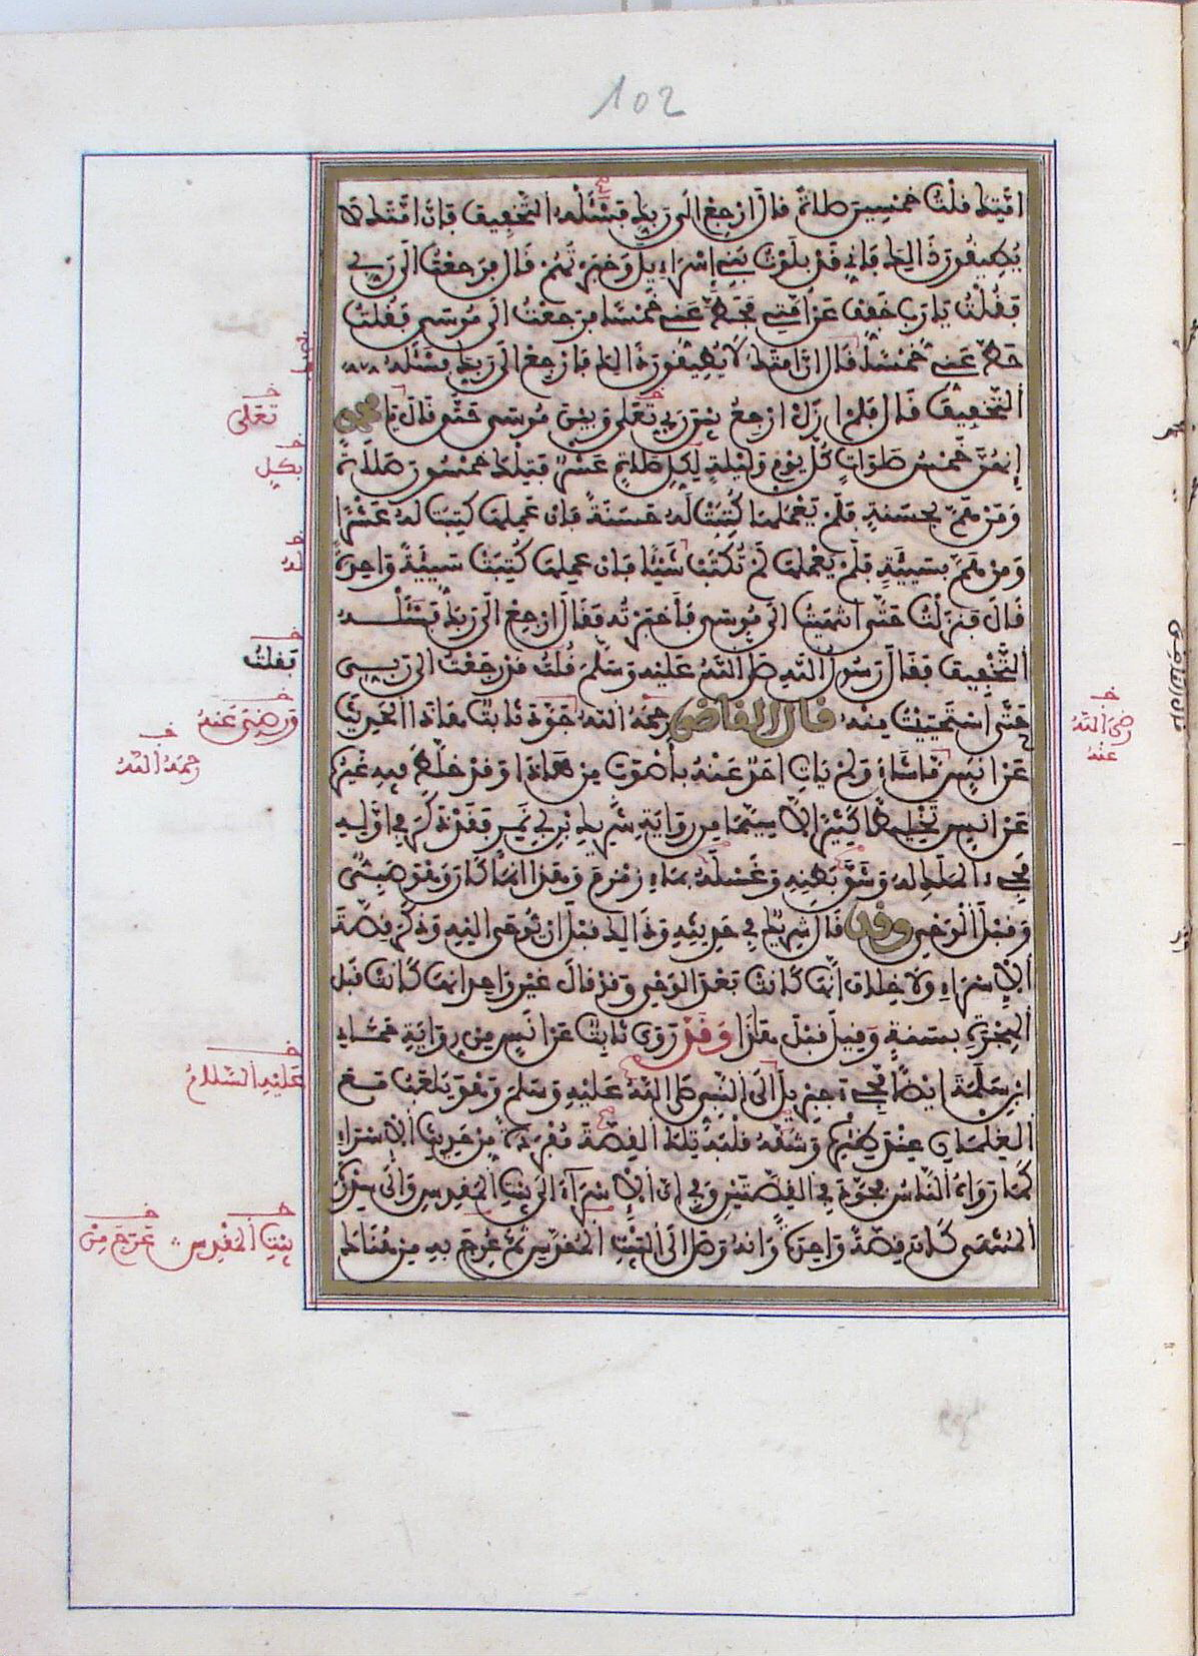 102
امتك قلت خمسين صلاة قال ارجع الى ربك فسئله التخفيف فان امتك لا
يطيقون ذالك فاني قد بلوت بني إسراءيل وخبرتهم قال فرجعت الى ربي
فقلت يارب خفف عن امتي فحط عني خمسا فرجعت الى موسى فقلت
حط عني خمسا قال ان امتك لا يطيقون ذالك فارجع الى ربك فسئله
التخفيف قال فلم ازل ارجع بين ربي تعلى وبين موسى حتى قال يا محمد
إنهن خمس صلوات كل يوم وليلة لكل صلاة عشر فتلك خمسون صلاة
ومن هم بحسنة فلم يعملها كتبت له حسنة فان عملها كتبت له عشرا
ومن هم بسيئة فلم يعملها لم تكتب شيئا فان عملها كتبت سيئة واحدة
قال فنزلت حتى انتهيت الى موسى فأخبرته فقال ارجع الى ربك فسئله
التخفيف فقال رسول الله صلى الله عليه وسلم قلت قد رجعت الى ربي
حتى استحييت منه قال القاضى رحمه الله جود ثابت هاذا الحديث
عن انس ماشاء ولم يات احد عنه بأصوب من هاذا وقد خلط فيه غيره
عن انس تخليطا كثيرا لا سيما من رواية شريك بن ابي نمر فقد ذكر في اوله
مجيء الملك له وشق بطنه وغسله بماء زمزم وهذا انما كان وهو صبي
وقبل الوحي وقد قال شريك في حديثه وذالك قبل ان يوحى اليه وذكر قصة
الاسراء ولا خلاف انها كانت بعد الوحي وقد قال غير واحد انها كانت قبل
الهجرة بسنة وقيل قبل هذا وقد روى ثابت عن انس من رواية حماد
ابن سلمة ايضا مجيء جبريل الى النبي صلى الله عليه وسلم وهو يلعب مع
الغلمان عند ظئره وشقه قلبه تلك القصة مفردة من حديث الاسراء
كما رواه الناس فجود في القصتين وفي ان الاسراء الى بيت المقدس والى سدرة
المنتهى كان قصة واحدة وانه وصل الى البيت المقدس ثم عرج به من هناك
تعلى
بكل
له
فقلت
ورضى عنه
رحمه الله
رضى الله
عنه
عليه السلام
بيت المقدس
عرج من